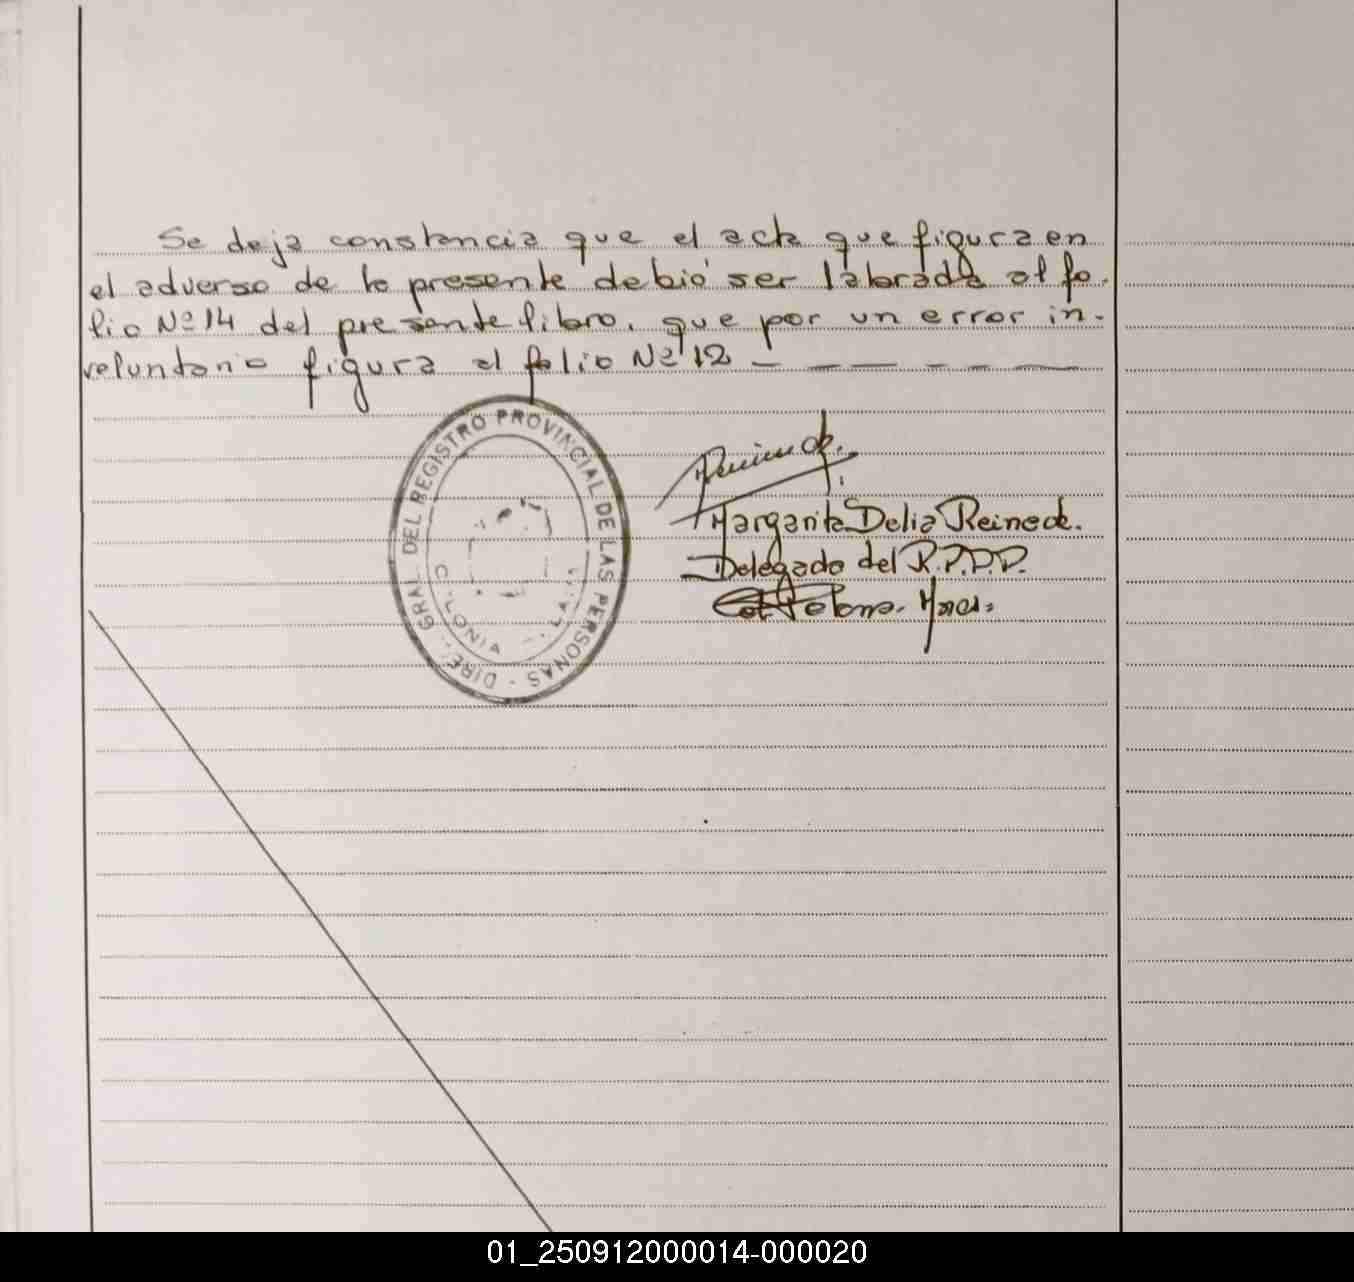 Se deja constancia que el acta que figura en
el adverso de la presente debió ser labrada al fo-
lio Nº 14 del presente libro, que por un error in-
voluntario figura al folio Nº 12 — — — — — —
DIREC. GRAL. DEL REGISTRO PROVINCIAL DE LAS PERSONAS -
COLONIA
Reineck.
Margarita Delia Reineck.
Delegada del R.P.D.P.
Paloma.
01_250912000014-000020